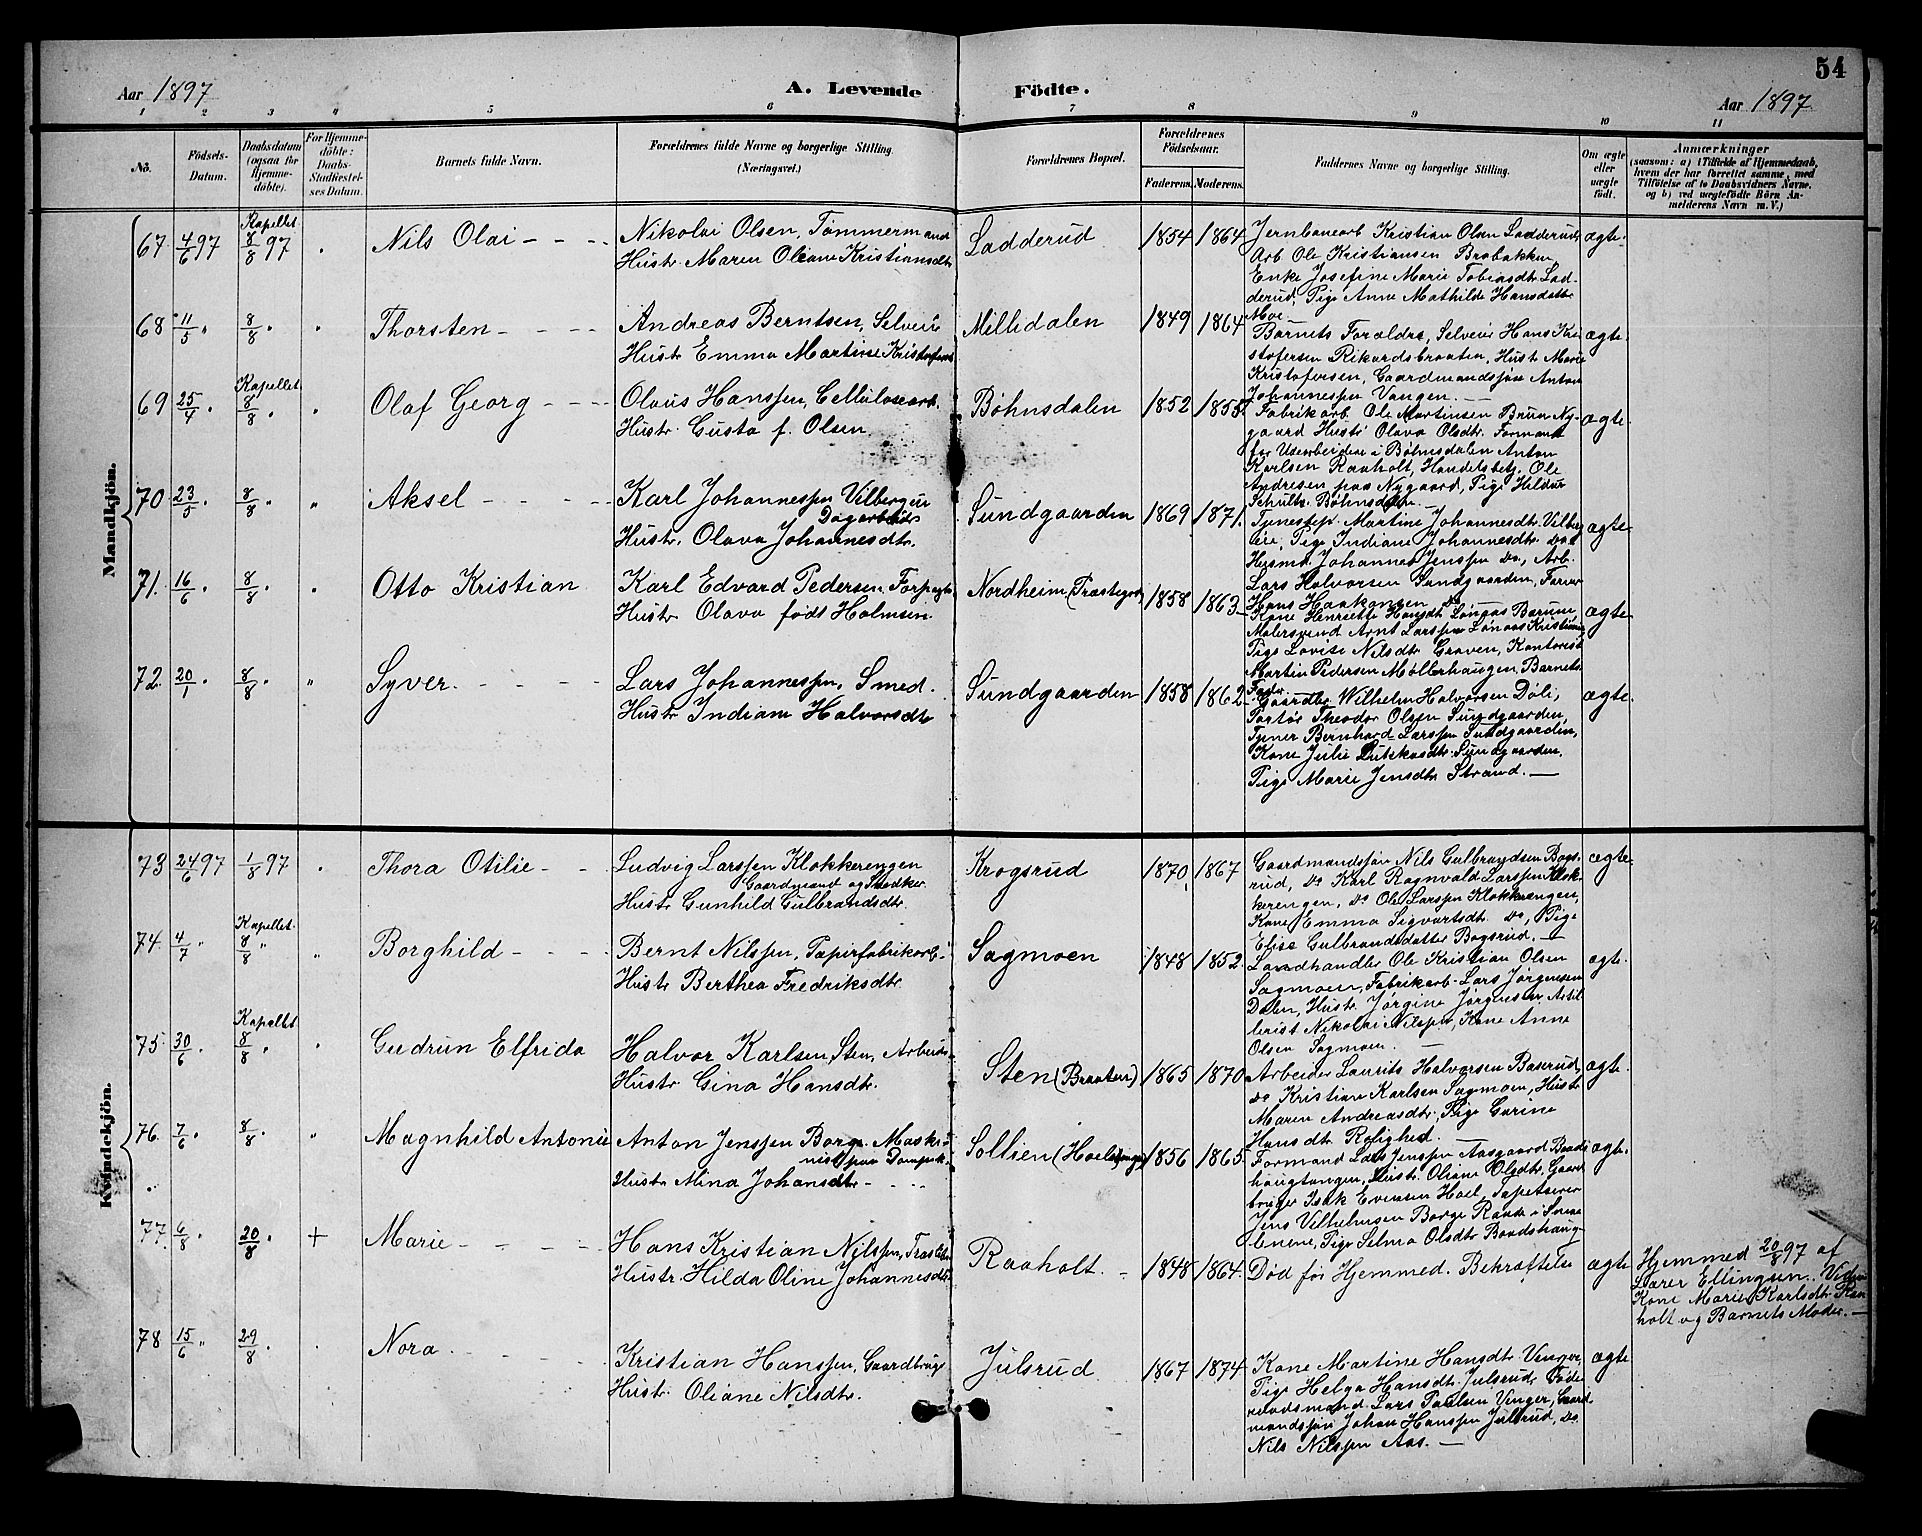 54
Aar 1897
A. Levende Födte.
Aar 1897
1 2 3 4 5 6 7 8 9 10 11
No.
Födsels-
Datum.
Daabsdatum
(ogsaa for
Hjemme-
döbte).
For Hjemme-
döbte:
Daabs-
Stadfæstel-
ses Datum.
Barnets fulde Navn.
Forældrenes fulde Navne og borgerlige Stilling.
(Næringsvei.)
Forældrenes Bopæl.
Forældrenes
Födselsaar.
Faderens. Moderens.
Faddernes Navne og borgerlige Stilling.
Om ægte
eller
uægte
födt.
Anmærkninger
(saasom: a) i Tilfælde af Hjemmedaab,
hvem der har forrettet samme, med
Tilföielse af to Daabsvidners Navne,
og b) ved uægtefödte Börn An-
melderens Navn m. V.)
Mandkjön.
67 4/6 97 Kapellet 8/8 97 Nils Olai
Nikolai Olsen, Tømmermand
Hustr. Maren Oliane Kristiansdtr
Ladderud 1854 1864
Jernbanearb Kristian Olsen Ladderud,
Arb Ole Kristiansen Brobakken
Enke Josefine Marie Tobiasdtr Lad-
derud, Pige Anne Mathilde Hansdatter
Moe
ægte.
68 11/5 " 8/8 " " Thorsten
Andreas Berntsen, Selveier
Hustr Emma Martine Kristofersdt
Millidalen 1849 1864
Barnets Forældre, Selveier Hans Kri-
stofersen Rikardsbraaten, Hustr Marie
Kristofersen, Gaardmandssøn Anton
Johannessen Vangen.
ægte.
69 25/4 " Kapellet 8/8 " " Olaf Georg
Olaus Hanssen, Cellulosearb.
Hustr. Gusta f. Olsen
Bøhnsdalen 1852 1855
Fabrikarb Ole Martinsen Brun Ny-
gaard Hustr Olava Olsdtr. Formand
for Udearbeidere i Bøhnsdalen Anton
Karlsen Raaholt, Handelsbetj. Ole
Andresen paa Nygaard, Pige Hilda
Schultz Bøhnsdalen
ægte
70 23/5 " 8/8 " " Aksel
Karl Johannessen Vilbergeie
Dagarbeider
Hustr. Olava Johannesdtr.
Sundgaarden 1869 1871.
Tjenestepi. Martine Johannesdtr. Vilberg
eie, Pige Indiane Johannesdtr Do
Husmd. Johannes Jenssen Do, Arb.
Lars Halvorsen Sundgaarden,
Hans Haakonsen Do
ægte
71. 16/6 " 8/8 " " Otto Kristian
Karl Edvard Pedersen Forpagter
Hustr Olava født Holmsen.
Nordheim (Præstegrd) 1858 1863
Kone Henriette Hansdtr Lønaas Bærum,
Malersvend Arnt Larssen Lønaas Kristiania
Pige Lovise Nilsdtr Graven, Kontorist
Martin Pedersen Møllerhaugen, Barnets
Fader.
ægte
72. 20/1 " 8/8 " " Syver.
Lars Johannessen, Smed.
Hustr Indiane Halvorsdtr
Sundgaarden 1858 1862
Gaardbr Wilhelm Halvorsen Døli,
Portør Theodor Olsen Sundgaarden,
Tjener Bernhard Larssen Sundgaarden,
Kone Julie Sundgaarden.
Pige Marie Jensdtr Strand.
ægte
Kvindekjön.
73 24/6 97 1/8 97 Thora Otilie
Ludvig Larssen Klokkerengen
Gaardmand og Snedker
Hustr Gunhild Gulbrandsdtr.
Krogsrud 1870 1867
Gaardmandssøn Nils Gulbrandsen Bogs-
rud, Do Karl Ragnvald Larssen Klok-
kerengen, Do Ole Larssen Klokkerengen,
Kone Emma Sigvartsdtr Do, Pige
Elise Gulbrandsdatter Bogsrud.
ægte
74. 4/7 " Kapellet 8/8 " " Borghild
Bernt Nilssen, Papirfabrikarb
Hustr Berthea Fredriksdtr.
Sagmoen 1848 1852
Landhandler Ole Kristian Olsen
Sagmoen, Fabrikarb Lars Jørgensen
Dalen, Hustr Jørgine Jørgensen Artil-
lerist Nikolai Nilssen, Kone Anne
Olsen Sagmoen.
ægte.
75 30/6 " Kapellet 8/8 " " Gudrun Elfrida
Halvor Karlsen, Sten, Arbeider
Hustr Gina Hansdtr.
Sten (Braaten) 1865 1870
Arbeider Laurits Halvorsen Baserud,
Do Kristian Karlsen Sagmoen, Hustr
Maren Andreasdtr, Pige Garine
Hansdtr Rolighed.
ægte.
76. 7/6 " 8/8 " " Magnhild Antonie
Anton Jenssen Borge, Maski-
nist paa Dampsk.
Hustr Mina Johansdtr
Sollien 1856 1865.
Formand Lars Jenssen Aasgaard Baads
haugtangen, Hustr. Oliane Olsdtr, Gaard
bruger Isak Evensen Hoel, Tapetserer
Jens Vilhelmsen Borge Raade i Smaa-
lenene, Pige Selma Olsdtr Baadshaug
ægte.
77. 6/8 " 20/8 " + Marie
Hans Kristian Nilssen,
Hustr. Hilda Oline Johannesdtr
Raaholt. 1848 1864.
Død før Hjemmed. Bekræftelse
ægte
Hjemmed 20/8 97 af
Lærer Ellingsen. Vidner
Kone Marie Karlsdtr Raa-
holt og Barnets Moder.
78 15/6 " 29/8 Nora
Kristian Hanssen, Gaardbruger
Hustr. Oliane Nilsdtr.
Julsrud 1867 1874
Kone Martine Hansdtr Venger
Pige Helga Hansdtr Julsrud, Føde-
raadsmand Lars Paulsen Venger, Gaard-
mandssøn Johan Hanssen Julsrud, Do
Nils Nilssen Aas.
ægte